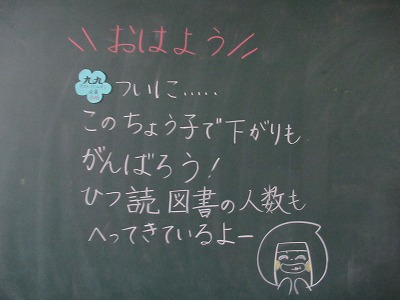 \\おはよう//
九九
ついに.....
このちょう子で下がりも
がんばろう!
ひつ読図書の人数も
へってきているよー